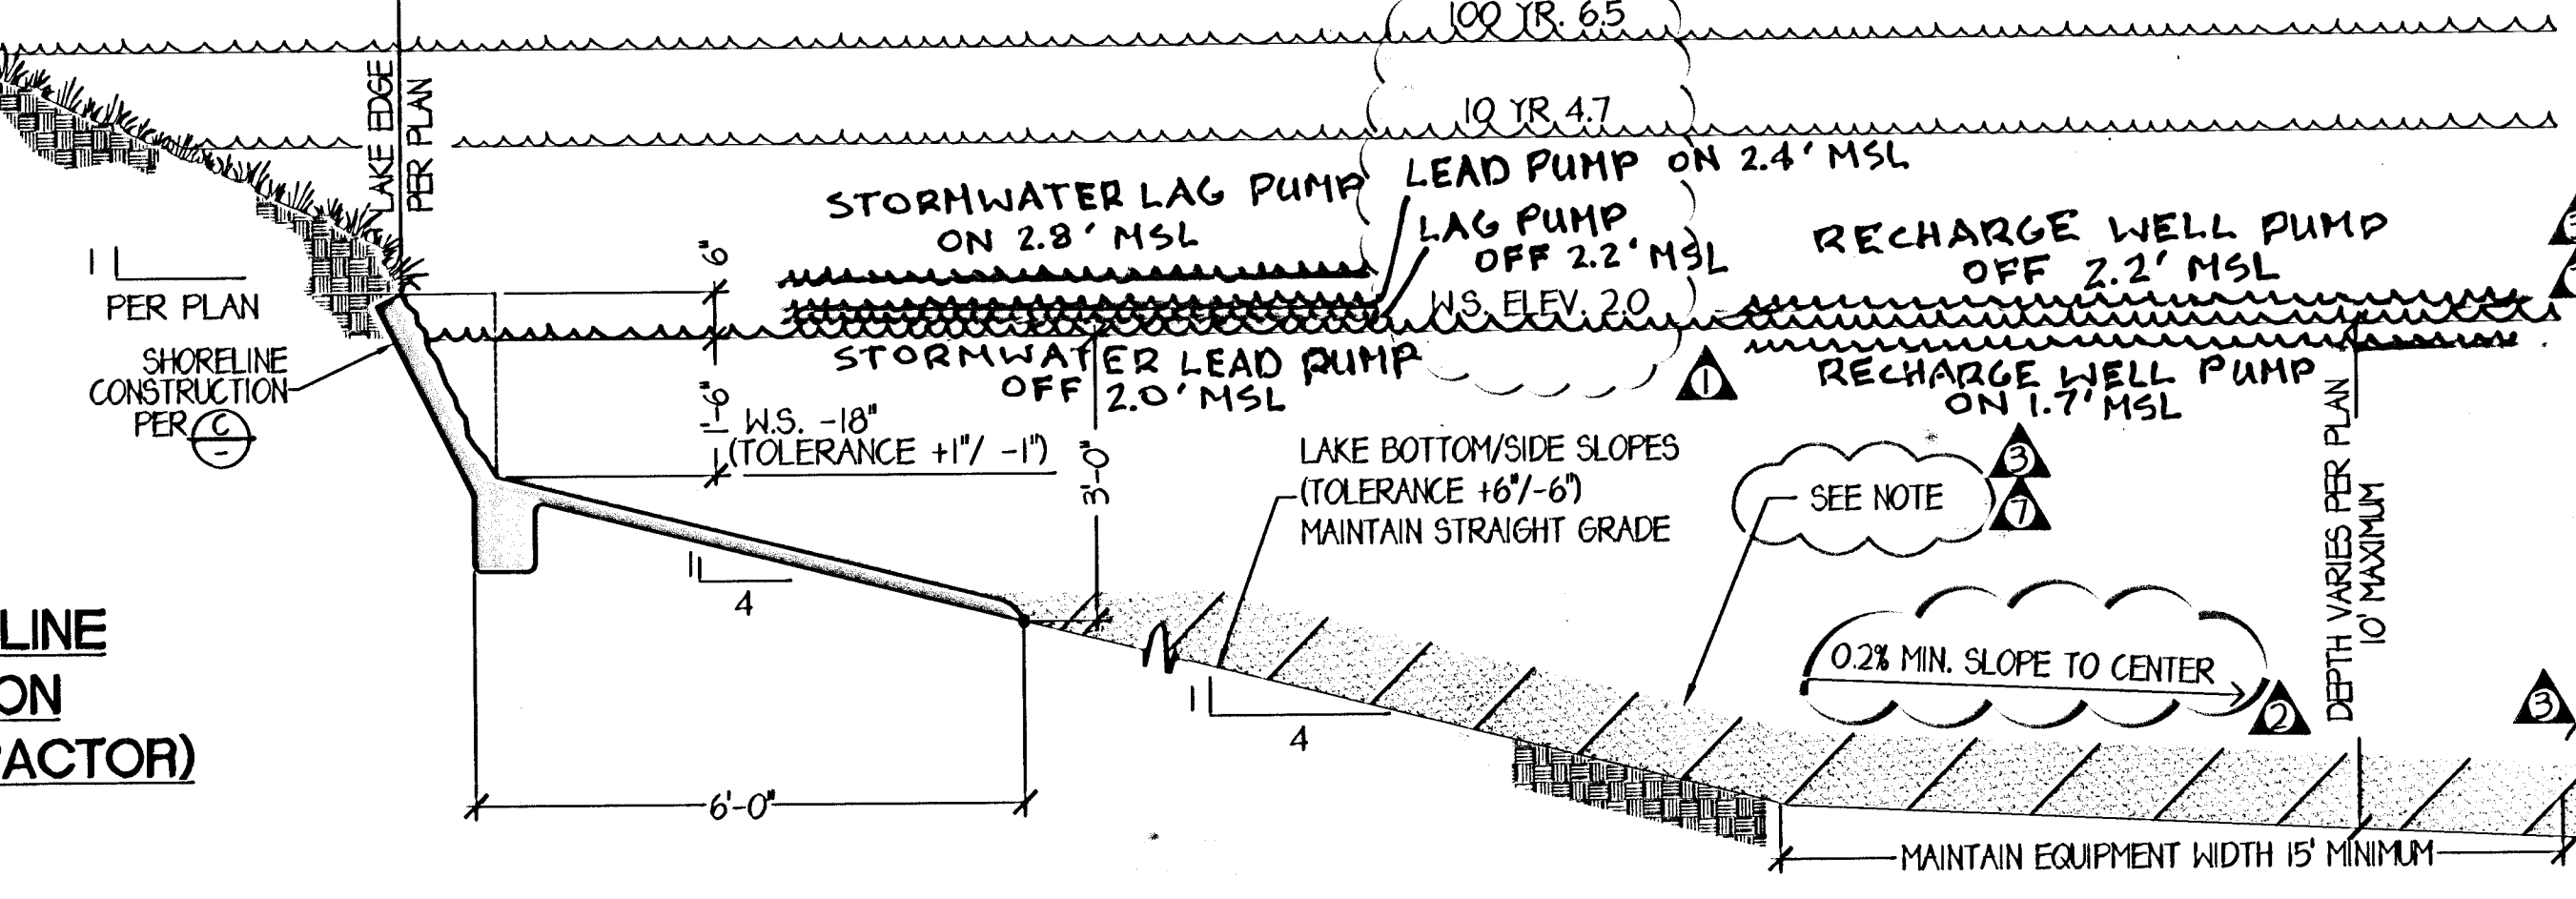 100 YR. 6.5
10 YR. 4.7
LAKE EDGE
PER PLAN
STORMWATER LAG PUMP
ON 2.8' MSL
LEAD PUMP ON 2.4' MSL
LAG PUMP
OFF 2.2' MSL
RECHARGE WELL PUMP
OFF 2.2' MSL
W.S. ELEV. 2.0
1
PER PLAN
6"
SHORELINE
CONSTRUCTION
PER C
-
STORMWATER LEAD PUMP
OFF 2.0' MSL
1
RECHARGE WELL PUMP
ON 1.7' MSL
1'-6"
W.S. -18"
(TOLERANCE +1"/ -1")
3'-0"
LAKE BOTTOM/SIDE SLOPES
(TOLERANCE +6"/-6")
MAINTAIN STRAIGHT GRADE
SEE NOTE
3
7
DEPTH VARIES PER PLAN
10' MAXIMUM
1
4
0.2% MIN. SLOPE TO CENTER
2
3
1
4
LINE
ON
RACTOR)
6'-0"
MAINTAIN EQUIPMENT WIDTH 15' MINIMUM